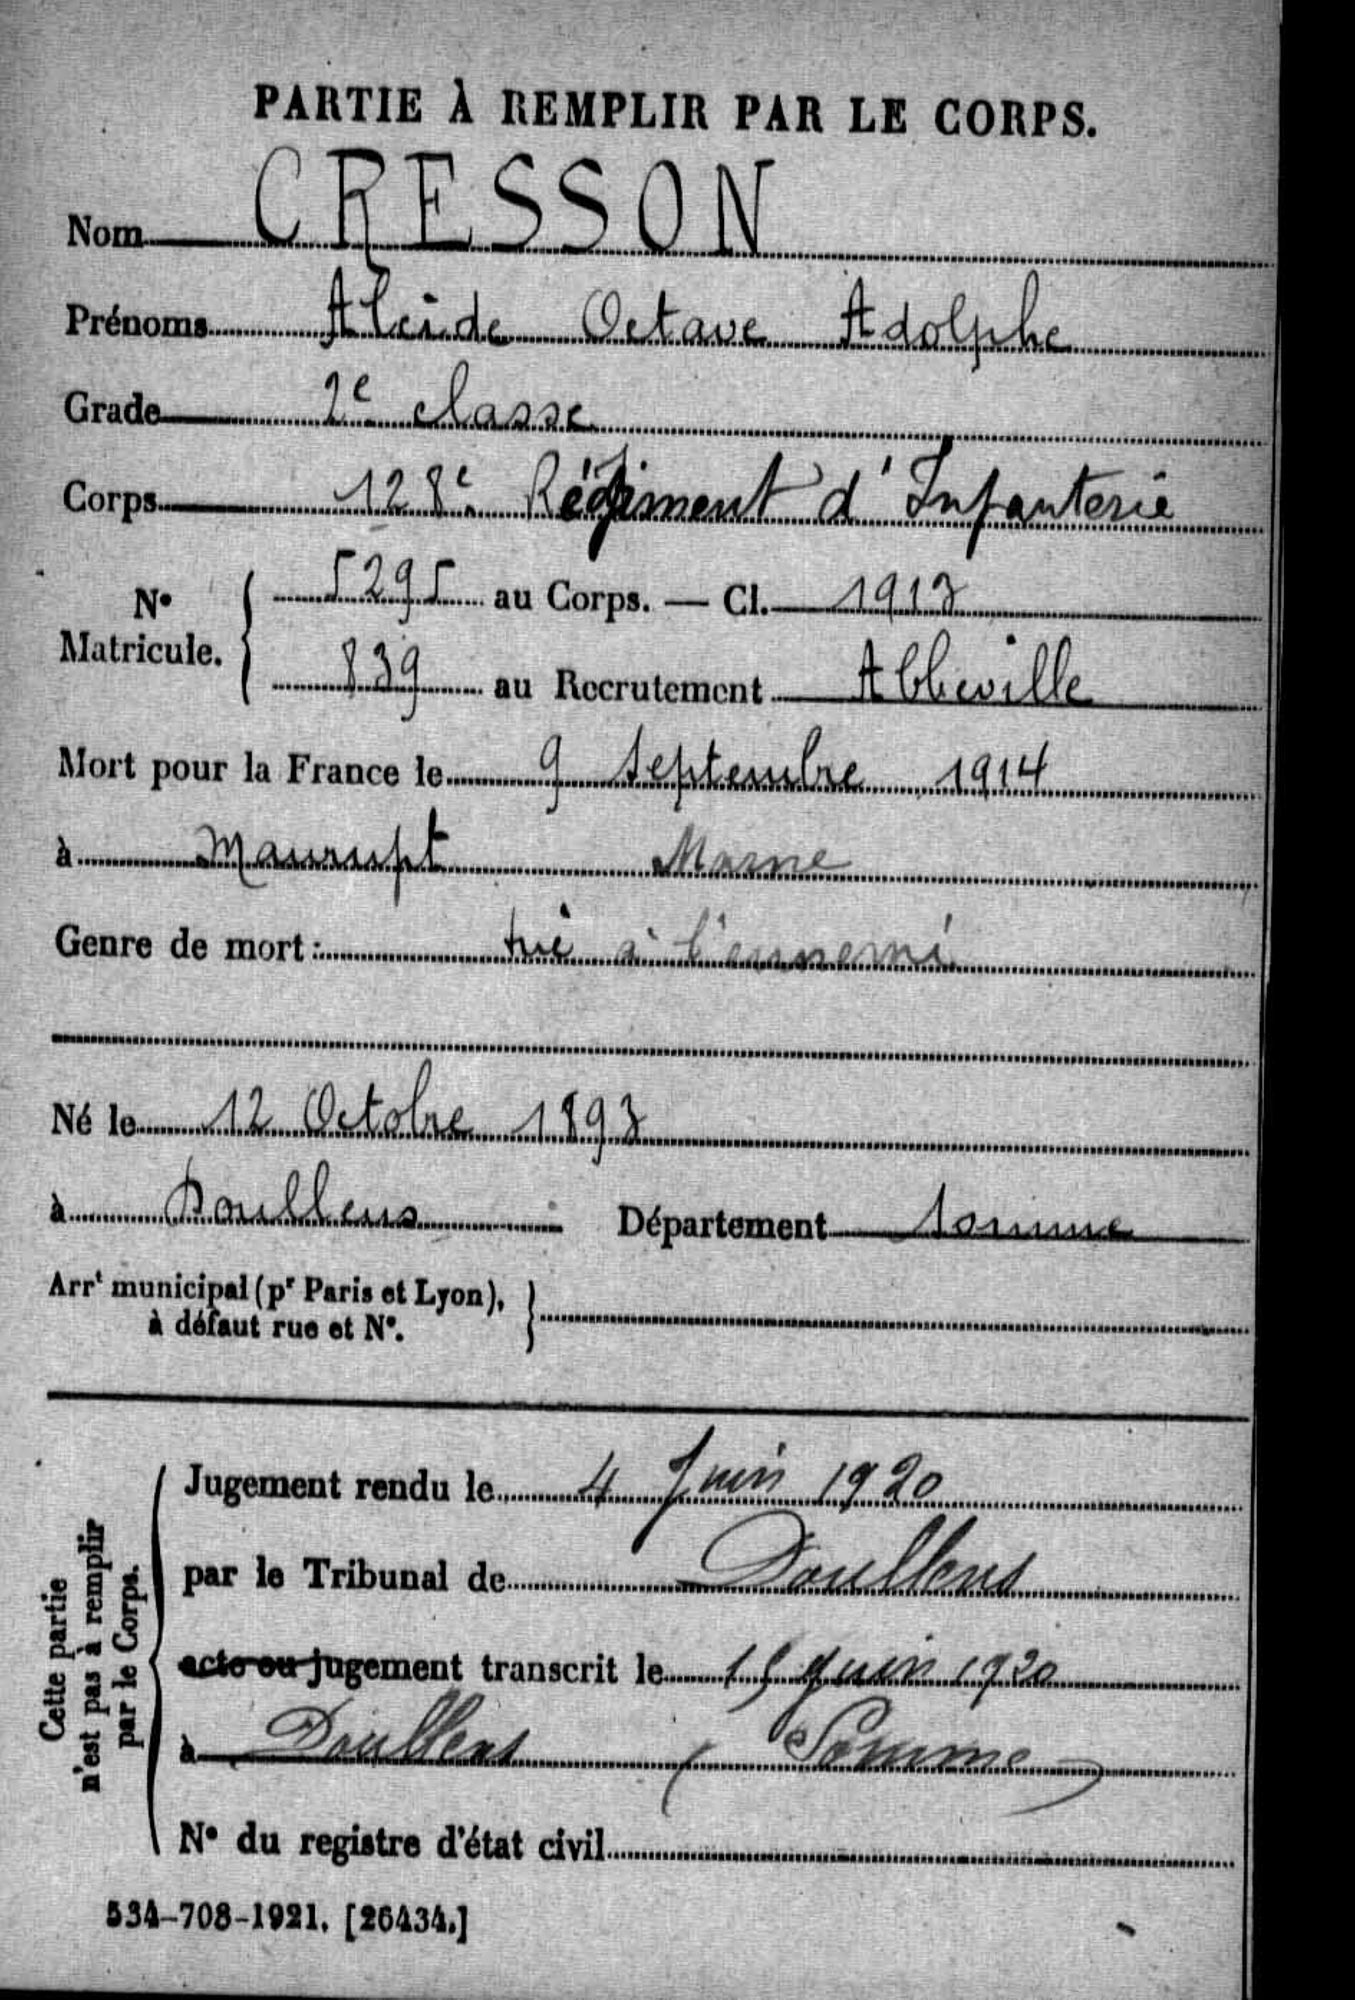 PARTIE À REMPLIR PAR LE CORPS.
Nom CRESSON
Prénoms Alcide Octave Adolphe
Grade 2e classe
Corps 128e Régiment d'Infanterie
No Matricule. { 5295 au Corps. — Cl. 1913
839 au Recrutement Abbeville
Mort pour la France le 9 Septembre 1914
à Maurupt Marne
Genre de mort : tué à l'ennemi
Né le 12 Octobre 1893
à Doullens Département Somme
Arrt municipal (pr Paris et Lyon), à défaut rue et No. }
Cette partie n'est pas à remplir par le Corps.
Jugement rendu le 4 Juin 1920
par le Tribunal de Doullens
acte ou jugement transcrit le 15 Juin 1920
à Doullens (Somme)
No du registre d'état civil
534-708-1921. [26434.]